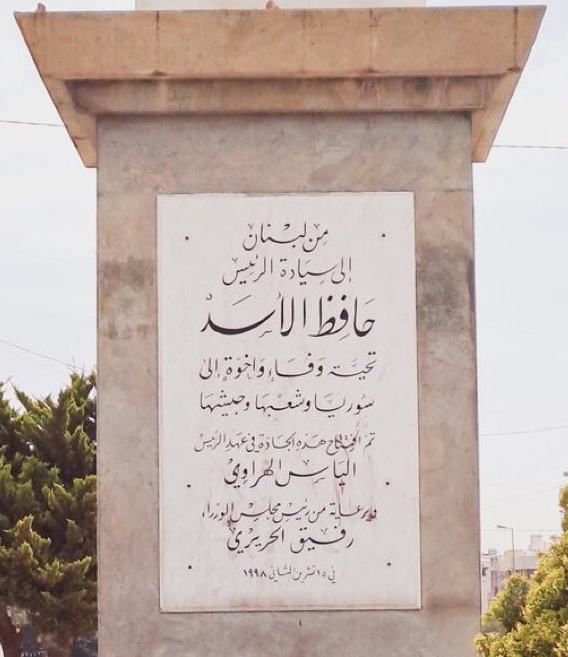 من لبنان
إلى سيادة الرئيس
حافظ الأسد
تحية وفاء واخوة إلى
سوريا وشعبها وجيشها
تم افتتاح هذه الجادة في عهد الرئيس
الياس الهراوي
وبرعاية من رئيس مجلس الوزراء
رفيق الحريري
في ١٥ تشرين الثاني ١٩٩٨